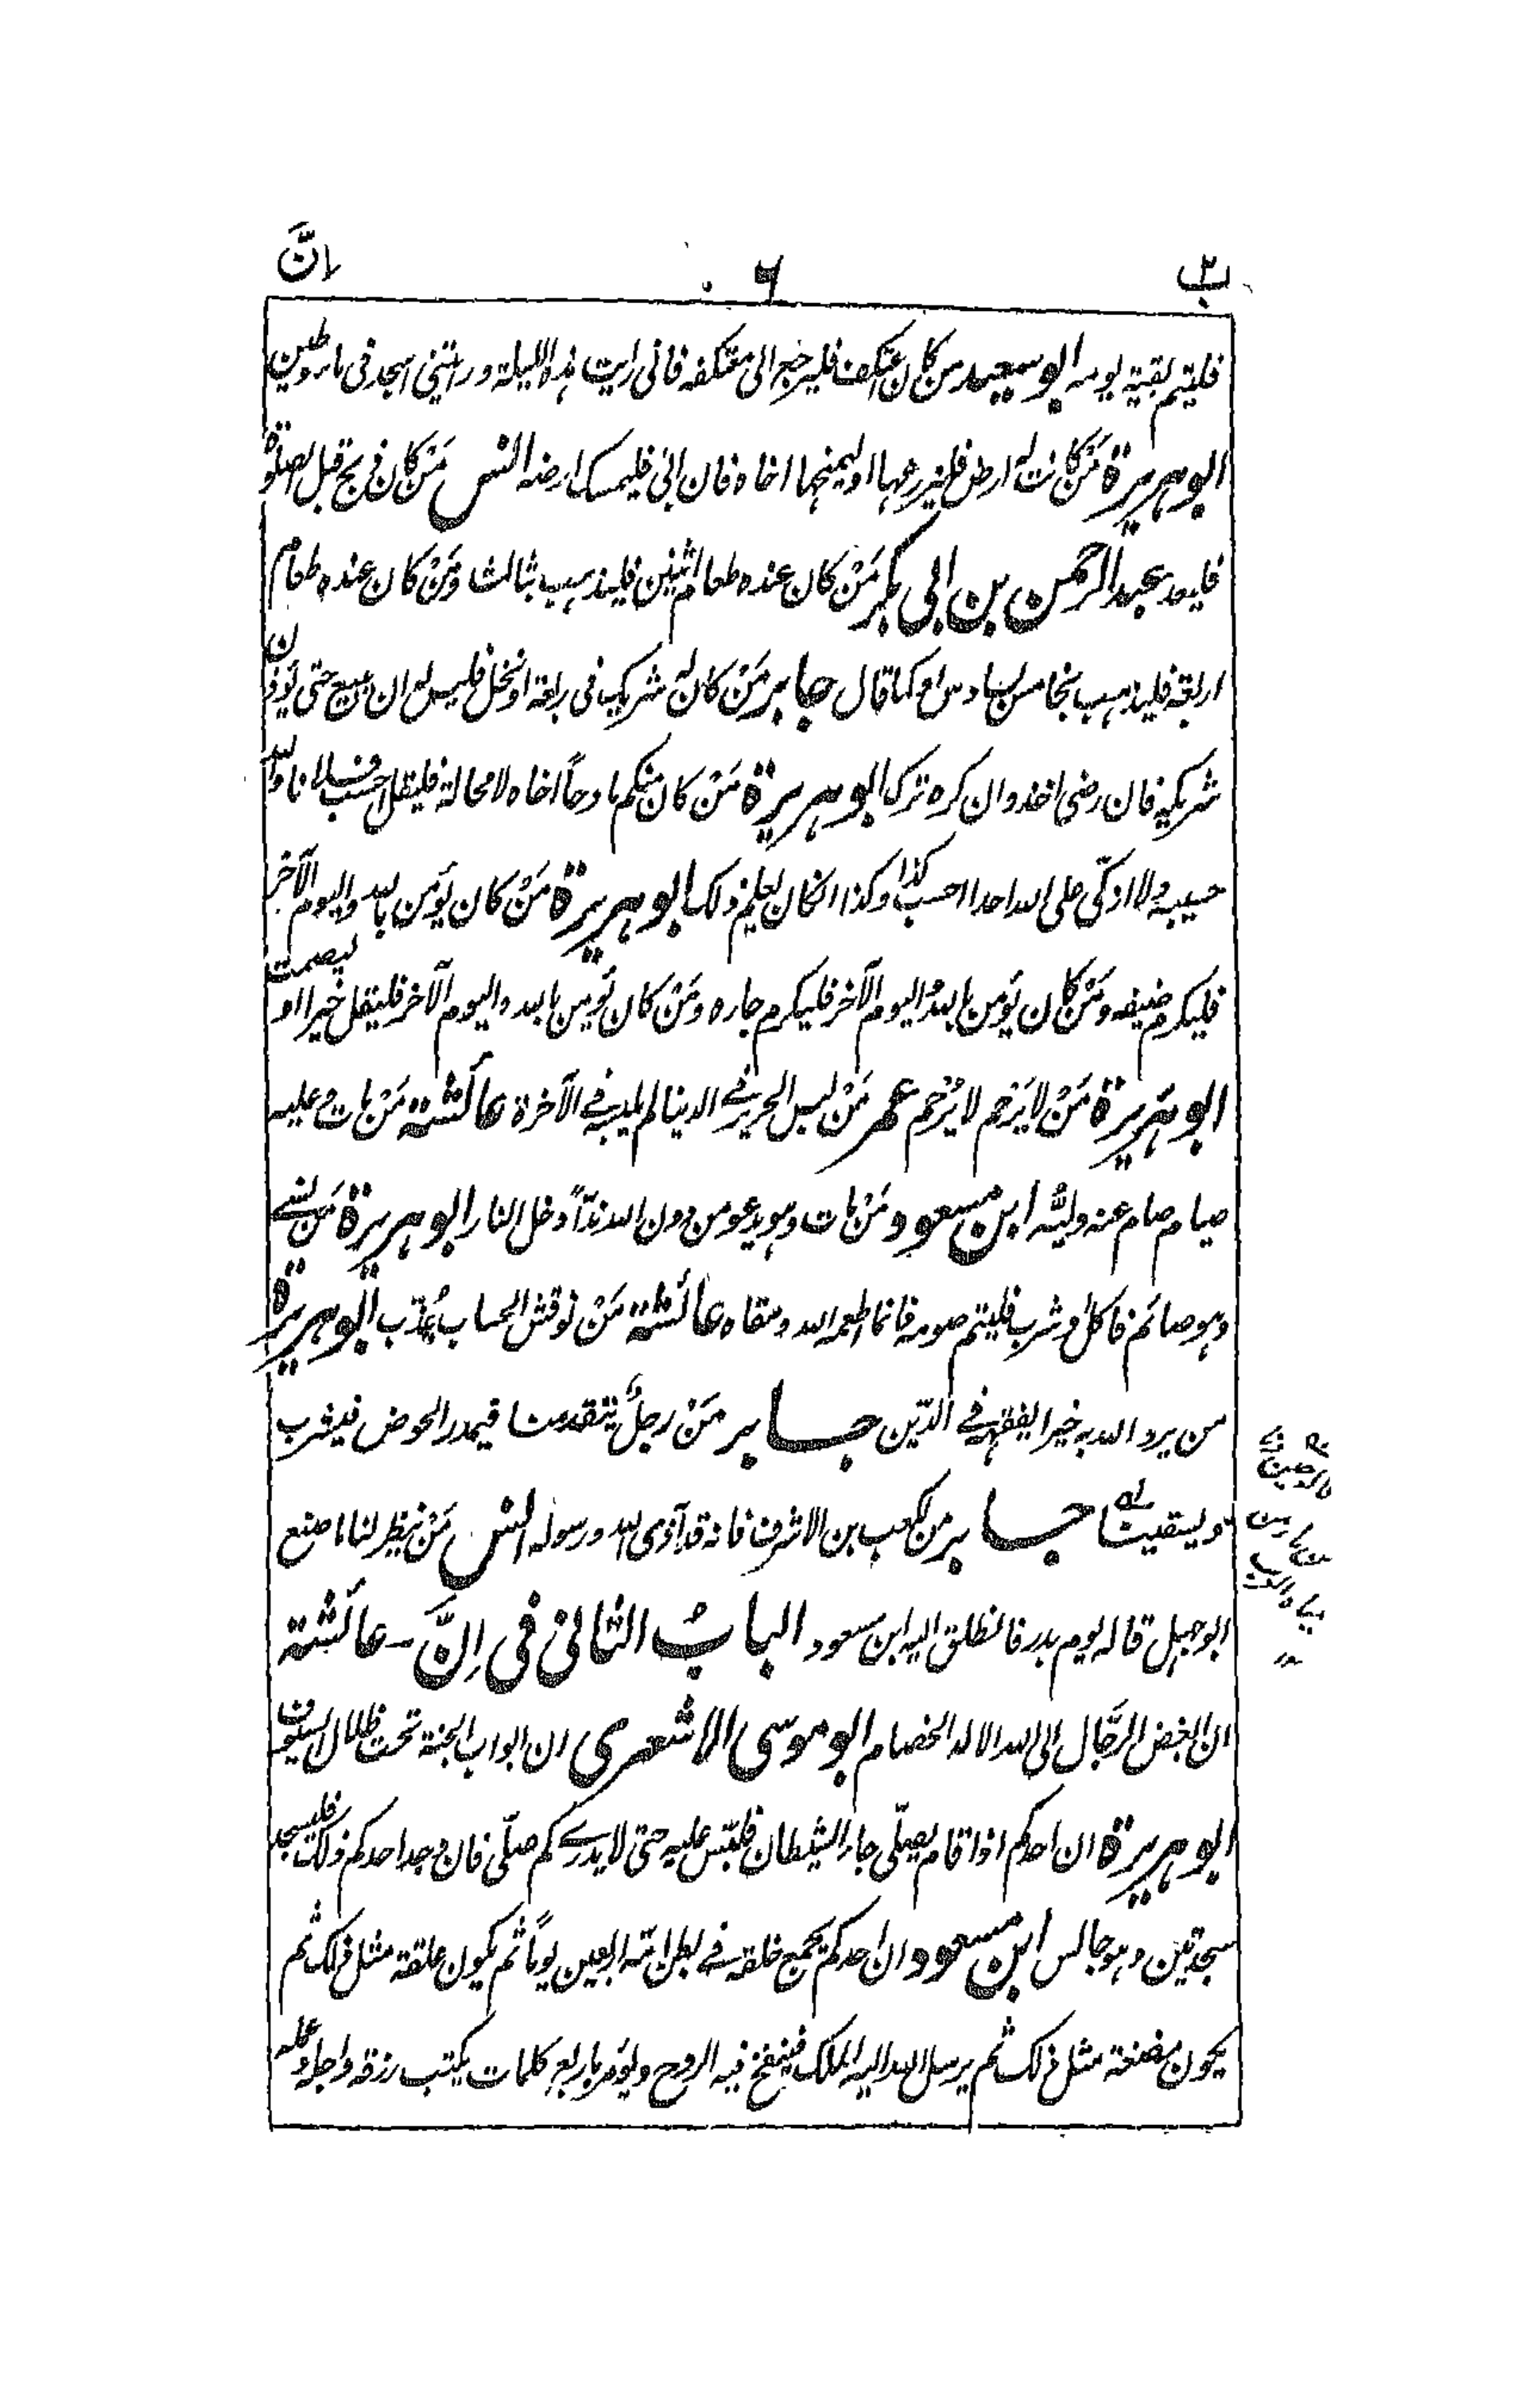 باب ٢ ٦ اِنَّ
فليتم بقية يومه ابو سعيد من كان اعتكف فليرجع الى معتكفه فانى رايت هذه الليلة ورايتنى اسجد فى ماء وطين
ابو هريرة مَنْ كانت له ارض فليزرعها او ليمنحها اخاه فان ابى فليمسك ارضه انس مَنْ كان ذبح قبل الصلوة
فليعد عبد الرحمن بن ابى بكر مَنْ كان عنده طعام اثنين فليذهب بثالث ومَنْ كان عنده طعام
اربعة فليذهب بخامس بسادس او كما قال جابر مَنْ كان له شريك فى ربعة او نخل فليس له ان يبيع حتى يؤذن
شريكه فان رضى اخذ وان كره ترك ابو هريرة مَنْ كان منكم مادحاً اخاه لا محالة فليقل احسب فلانا والله
حسيبه ولا ازكّى على الله احدا احسب كذا وكذا ان كان يعلم ذلك ابو هريرة مَنْ كان يؤمن بالله واليوم الآخر
فليكرم ضيفه ومَنْ كان يؤمن بالله واليوم الآخر فليكرم جاره ومَنْ كان يؤمن بالله واليوم الآخر فليقل خيرا او ليصمت
ابو هريرة مَنْ لا يَرْحم لا يُرْحم عمر مَنْ لبس الحرير فى الدنيا لم يلبسه فى الآخرة عائشة مَنْ مات وعليه
صيام صام عنه وليُّه ابن مسعود مَنْ مات وهو يدعو من دون الله ندّاً دخل النار ابو هريرة مَن نسى
وهو صائم فاكل او شرب فليتم صومه فانما اطعمه الله وسقاه عائشة مَنْ نوقش الحساب عُذّب ابو هريرة
من يرد الله به خيرا يفقهه فى الدّين جابر مَنْ رجلٌ يتقدمنا فيمدر الحوض فيشرب
ويسقينا جابر من لكعب بن الاشرف فانه قد آذى الله ورسوله انس مَنْ ينظر لنا ما صنع
ابو جهل قاله يوم بدر فانطلق اليه ابن مسعود البابُ الثانى فى اِنَّ - عائشة
ان ابغض الرجّال الى الله الالد الخصام ابو موسى الاشعرى ان ابواب الجنة تحت ظلال السيوف
ابو هريرة ان احدكم اذا قام يصلّى جاء الشيطان فلبّس عليه حتى لا يدرى كم صلّى فان وجد احدكم ذلك فليسجد
سجدتين وهو جالس ابن مسعود ان احدكم يجمع خلقه فى بطن امّه اربعين يوماً ثم يكون علقة مثل ذلك ثم
يكون مضغة مثل ذلك ثم يرسل الله اليه الملك فينفخ فيه الروح ويؤمر باربع كلمات يكتب رزقه واجله وعمله